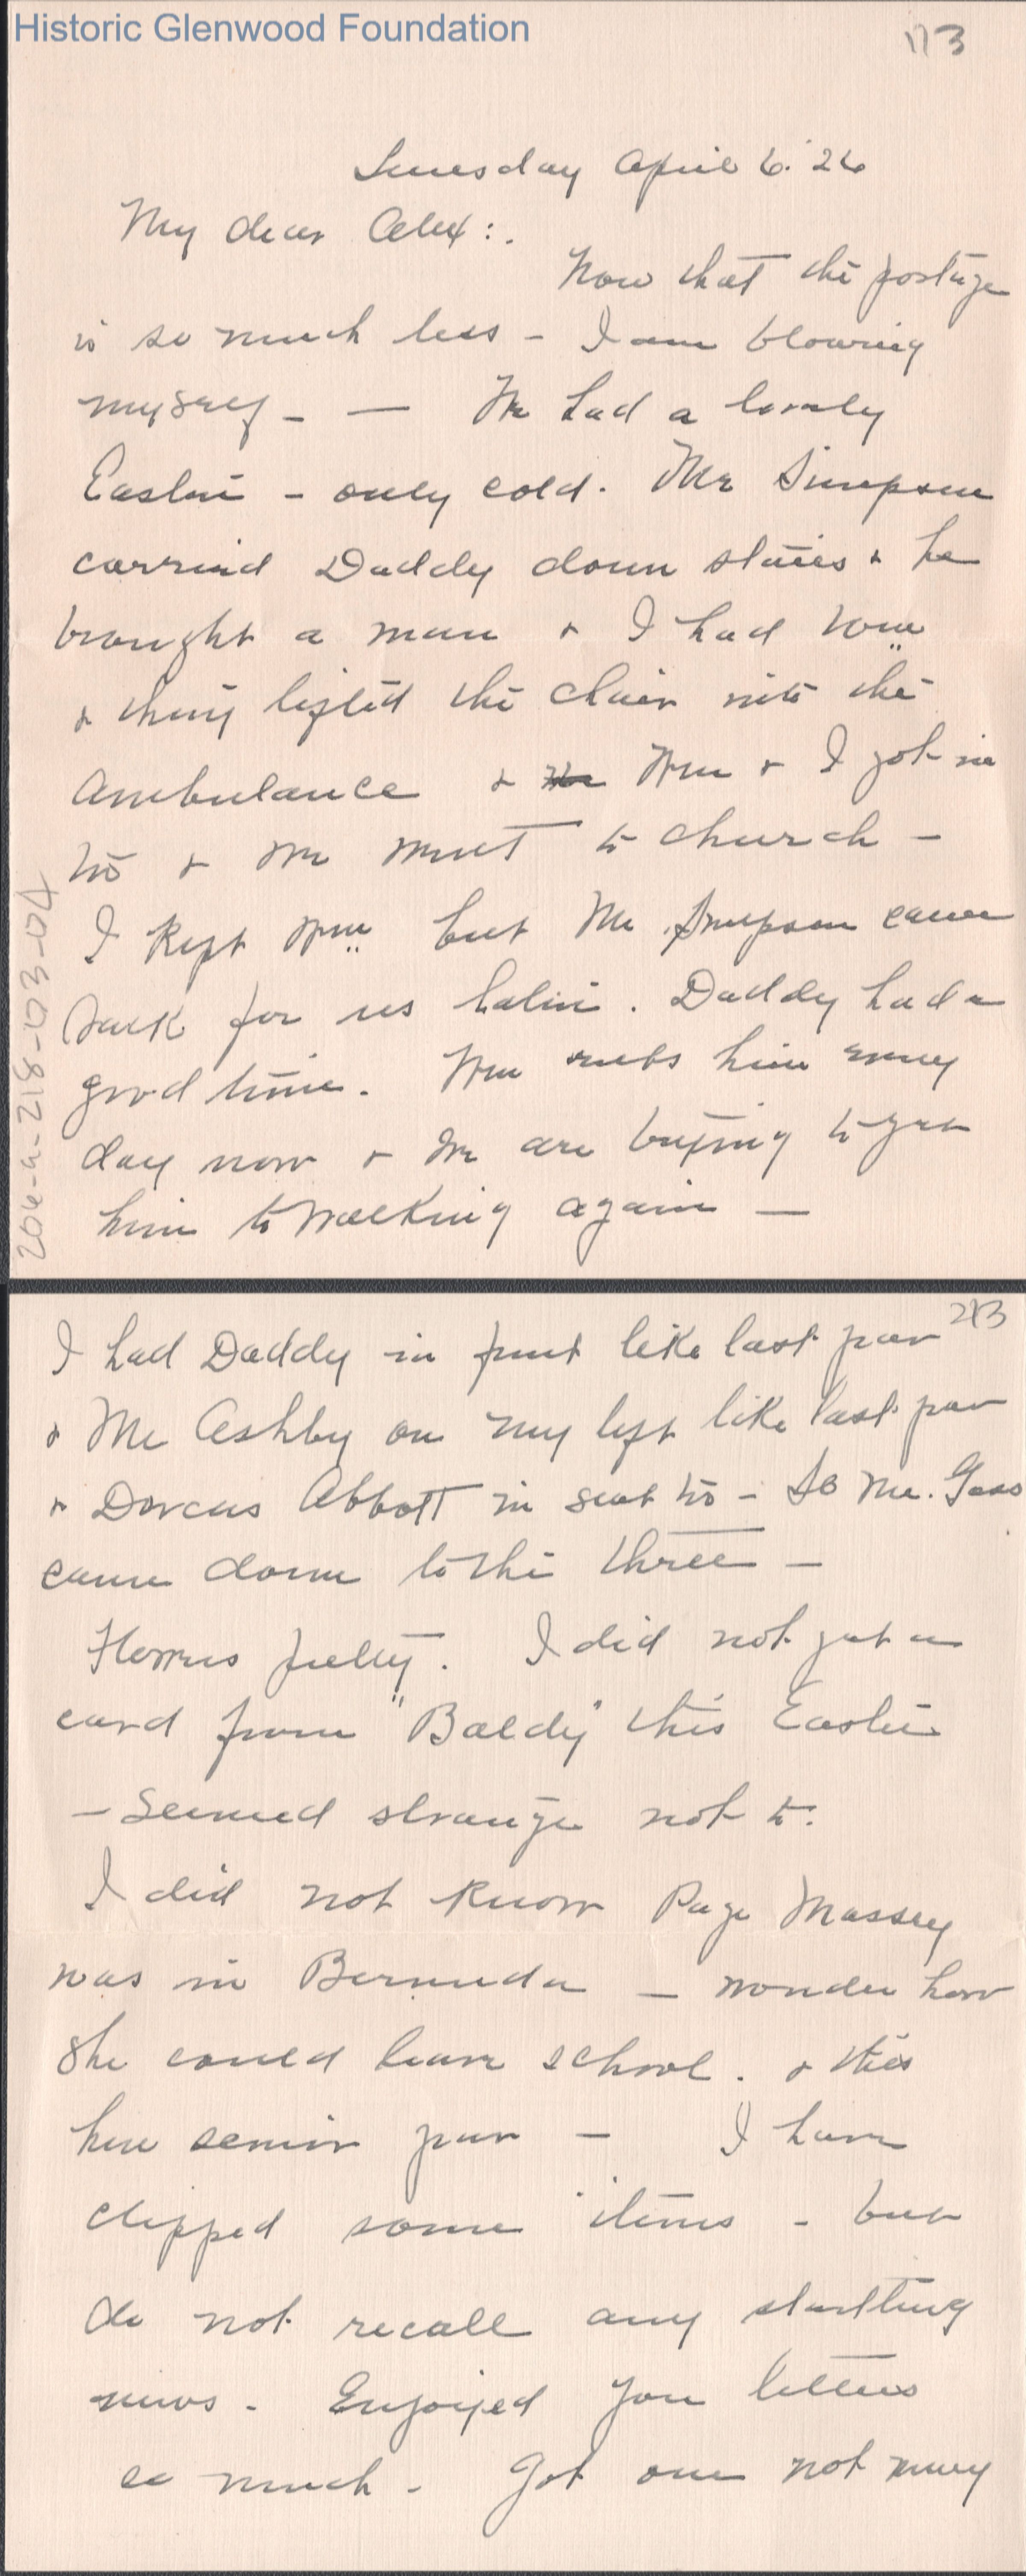 Historic Glenwood Foundation
1/3
Tuesday April 6. '26
My dear Alex:.
Now that the postage
is so much less - I am blowing
myself - — We had a lovely
Easter - only cold. Mr Simpson
carried Daddy down stairs & he
brought a man & I had Wm
& they lifted the chair into the
Ambulance & Wm & I got in
too & we went to church -
I kept Wm but Mr. Simpson came
back for us later. Daddy had a
good time. Wm rubs him every
day now & we are trying to get
him to walking again —
206-a-218-03-04
2/3
I had Daddy in front like last year
& Mr Ashby on my left like last year
& Dorcas Abbott in seat too - So Mr. Goss
came down to the three -
Flowers pretty. I did not get a
card from "Baldy" this Easter
- Seemed strange not to.
I did not know Page Massey
was in Bermuda - wonder how
she could leave school. & this
her senior year - I have
clipped some items - but
do not recall any startling
news. Enjoyed your letters
so much - Got one not many